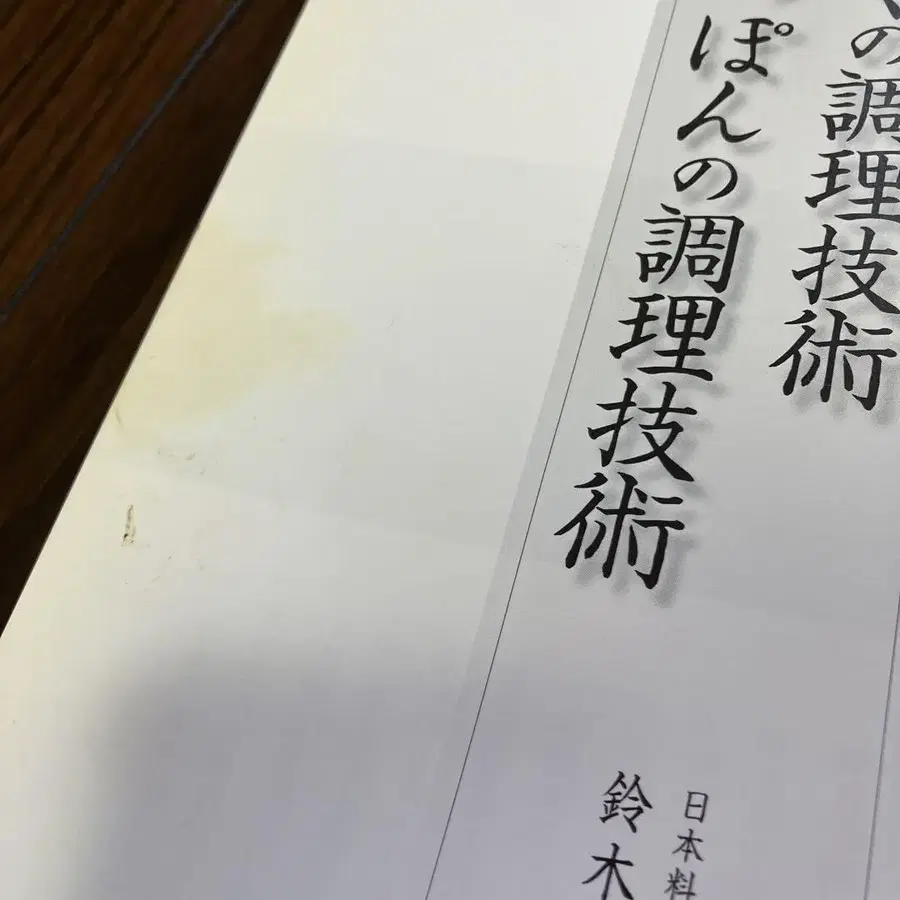 の調理技術
ぽんの調理技術
日本料
鈴木